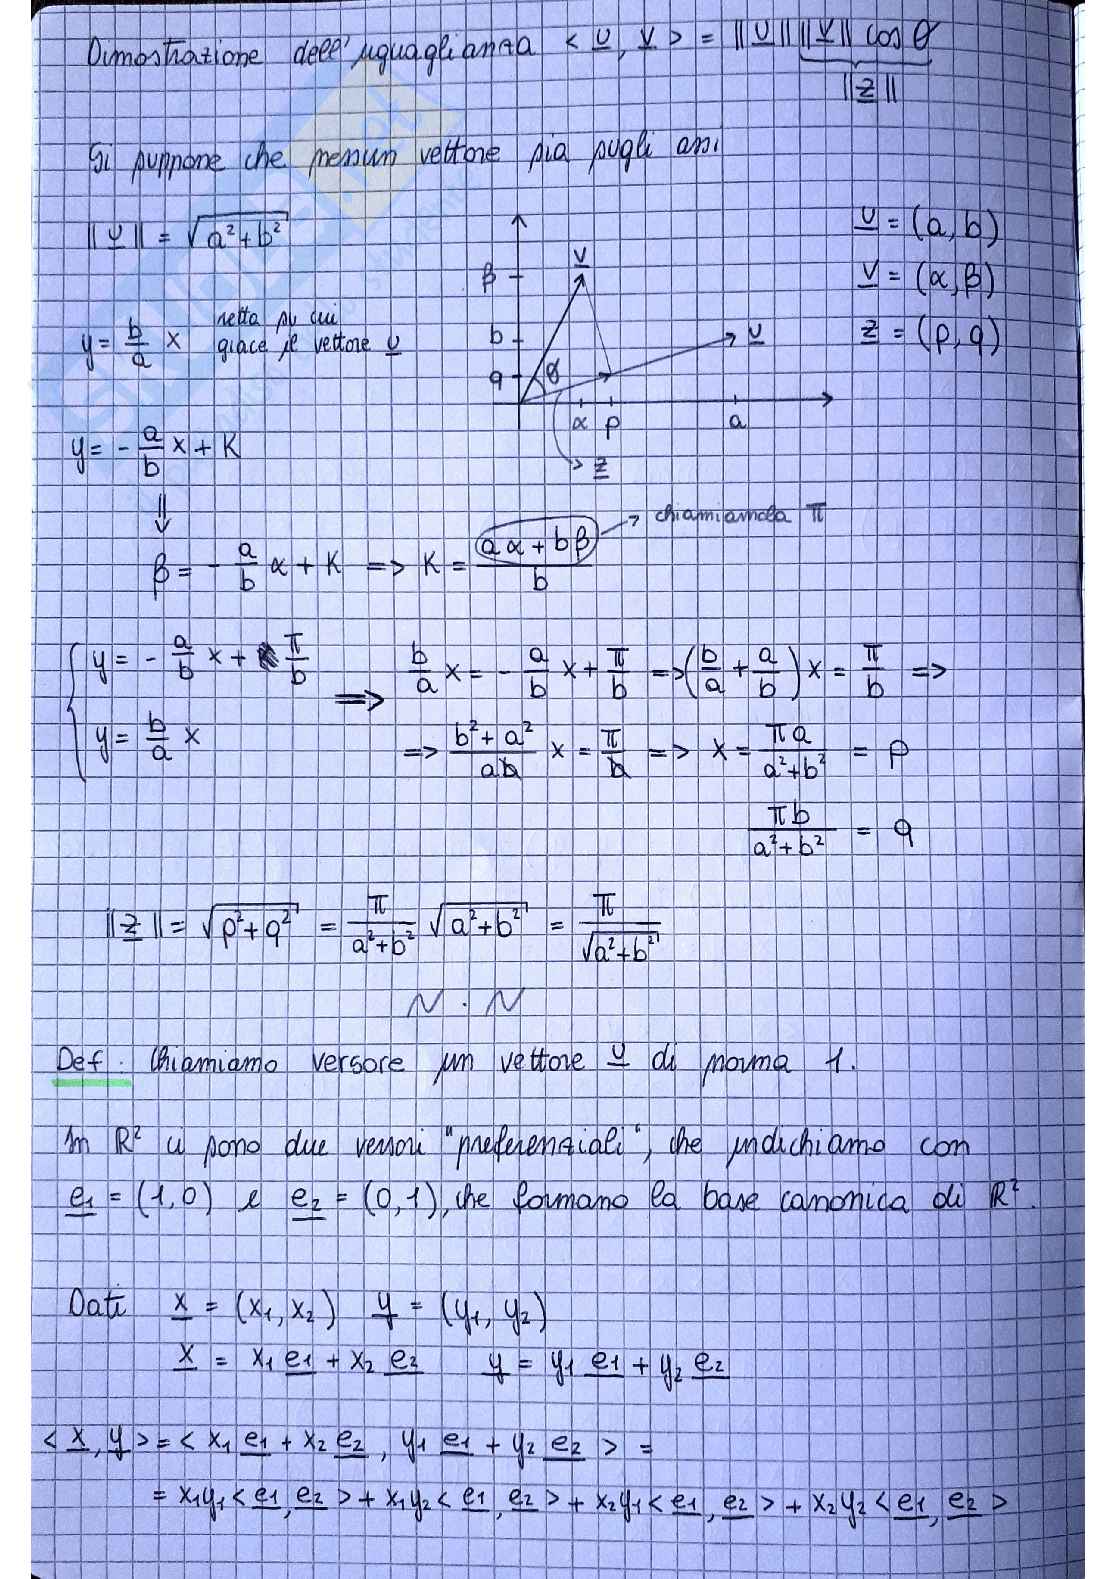 Dimostrazione dell'uguaglianza <u, v> = ||u|| ||v|| cos θ
||z||
Si suppone che nessun vettore sia sugli assi
||u|| = √(a²+b²)
u = (a, b)
v = (α, β)
z = (p, q)
y = b/a x retta su cui giace il vettore u
β
v
b
u
q
θ
α p a
z
y = - a/b x + K
⇓
β = - a/b α + K => K = (aα + bβ)/b → chiamiamola π
{ y = - a/b x + π/b
y = b/a x
=> b/a x = - a/b x + π/b => (b/a + a/b) x = π/b =>
=> (b² + a²)/(ab) x = π/b => x = πa/(a²+b²) = p
πb/(a²+b²) = q
||z|| = √(p²+q²) = π/(a²+b²) √(a²+b²) = π/√(a²+b²)
N . N
Def. Chiamiamo versore un vettore v di norma 1.
In R² ci sono due versori "preferenziali", che indichiamo con
e1 = (1,0) e e2 = (0,1), che formano la base canonica di R².
Dati x = (x1, x2) y = (y1, y2)
x = x1 e1 + x2 e2 y = y1 e1 + y2 e2
< x, y > = < x1 e1 + x2 e2, y1 e1 + y2 e2 > =
= x1y1 < e1, e2 > + x1y2 < e1, e2 > + x2y1 < e1, e2 > + x2y2 < e1, e2 >